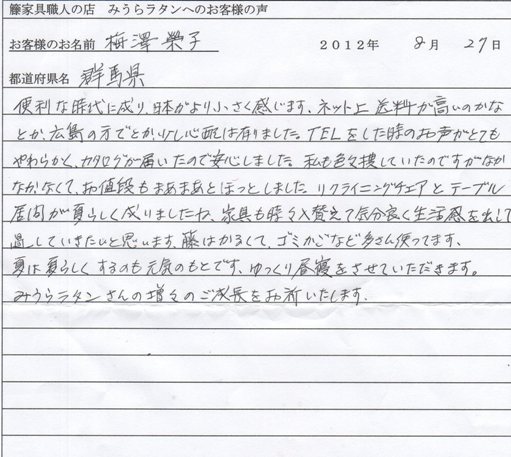 籐家具職人の店　みうらラタンへのお客様の声
お客様のお名前 梅澤榮子 2012年 8月 27日
都道府県名 群馬県
便利な時代に成り、日本がより小さく感じます。ネット上 送料が高いのかな
とか、広島の方でとか、少し心配は有りました。TELをした時のお声がとても
やわらかく、カタログが届いたので安心しました。私も色々捜していたのですがなか
なかなくて、お値段もまあまあとほっとしました リクライニングチェアとテーブル
居間が夏らしく成りましたね、家具も時々入替えて気分良く生活感を出して
過していきたいと思います。藤はかるくて、ゴミかごなど多さん使ってます。
夏は夏らしくするのも元気のもとです。ゆっくり昼寝をさせていただきます。
みうらラタンさんの増々のご成長をお祈いたします.